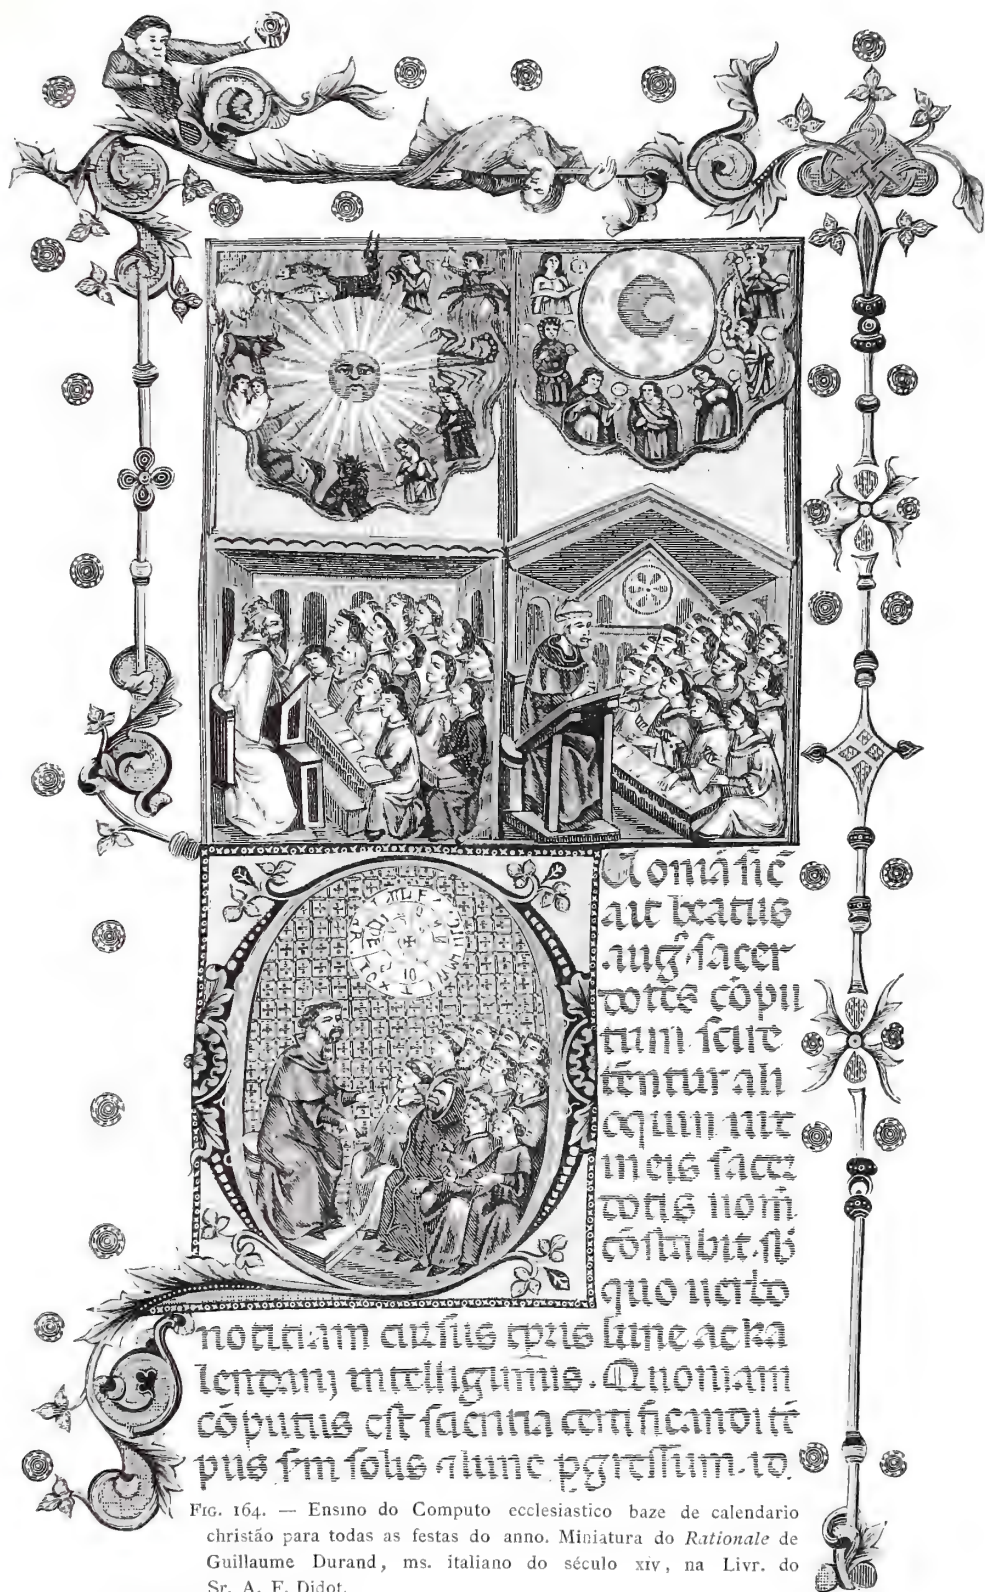 Uoniā sic̄
ait beatus
aug̃. sacer
dotes cōpu
tum scire
tēntur ali
oquin uix
in eis sacer
dotis nom̄
cōstabit. sb̄
quo uerbo
noticiam cursus tp̄ris lune ac ka
lendarij intelligimus. Quoniam
cōputus est sciencia certificandi tē
pus s̄m solis ⁊ lune p̄gressum. id.
FIG. 164. — Ensino do Computo ecclesiastico baze de calendario
christão para todas as festas do anno. Miniatura do Rationale de
Guillaume Durand, ms. italiano do século XIV, na Livr. do
Sr. A. F. Didot.